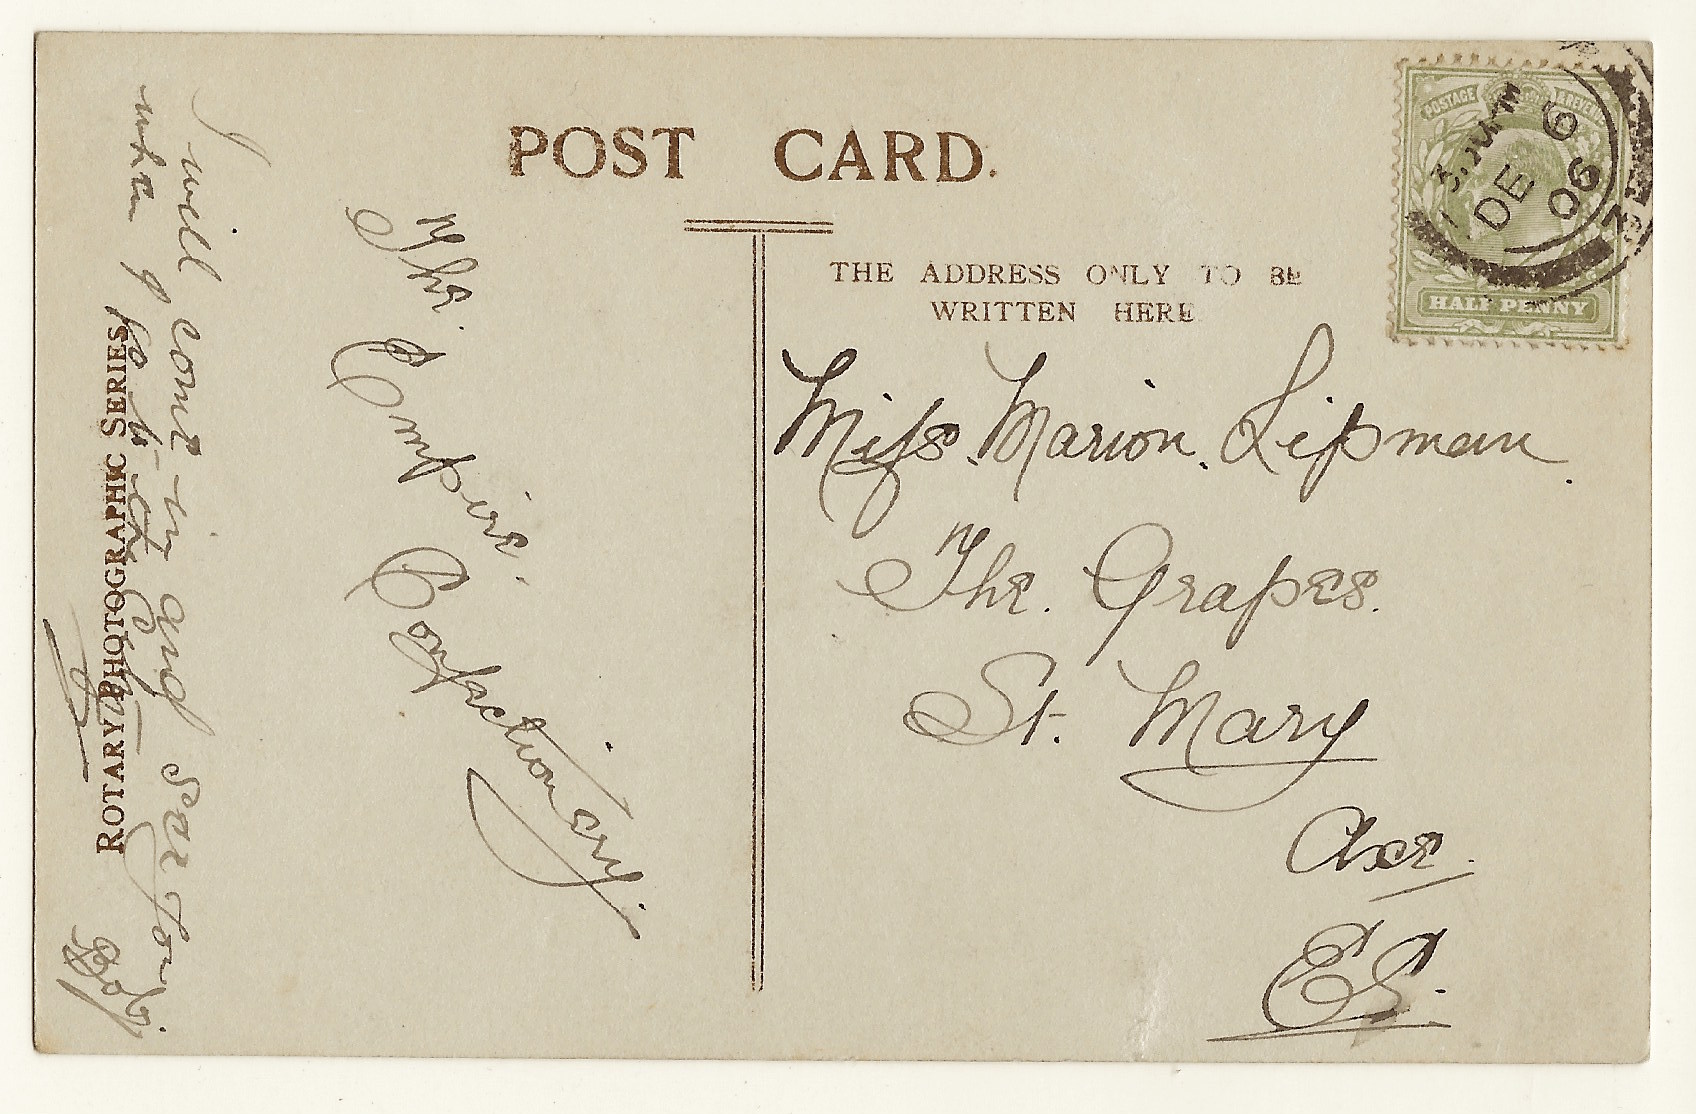 POST CARD.
THE ADDRESS ONLY TO BE
WRITTEN HERE
POSTAGE & REVENUE
HALF PENNY
DE 6
06
Miss. Marion. Lipman.
The. Grapes.
St. Mary
Axe.
EC.
The. Empire.
Confectionery.
I will come in and see you
when I go to the City
Bob.
ROTARY PHOTOGRAPHIC SERIES